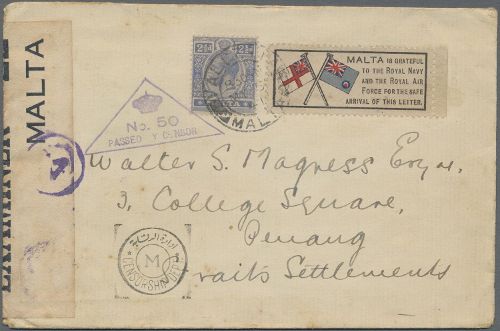 EXAMINER
MALTA
4
2½d
2½d
MALTA
MALTA IS GRATEFUL
TO THE ROYAL NAVY
AND THE ROYAL AIR
FORCE FOR THE SAFE
ARRIVAL OF THIS LETTER.
No. 50
PASSED BY CENSOR
Walter S. Magness Esqre.
3, College Square,
Penang
raits Settlements
ادارة الرقابة
M
CENSORSHIP DEPT